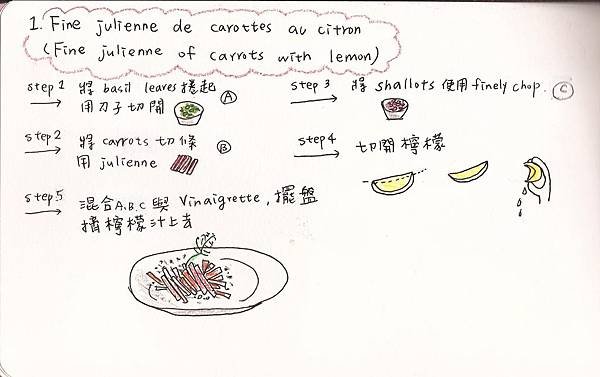 1. Fine julienne de carottes au citron
(Fine julienne of carrots with lemon)
step 1 將 basil leaves 捲起
用刀子切開 Ⓐ
step 2 將 carrots 切條 Ⓑ
用 julienne
step 3 將 shallots 使用 finely chop. Ⓒ
step 4 切開檸檬
step 5 混合 A.B.C 與 Vinaigrette, 擺盤
擠檸檬汁上去